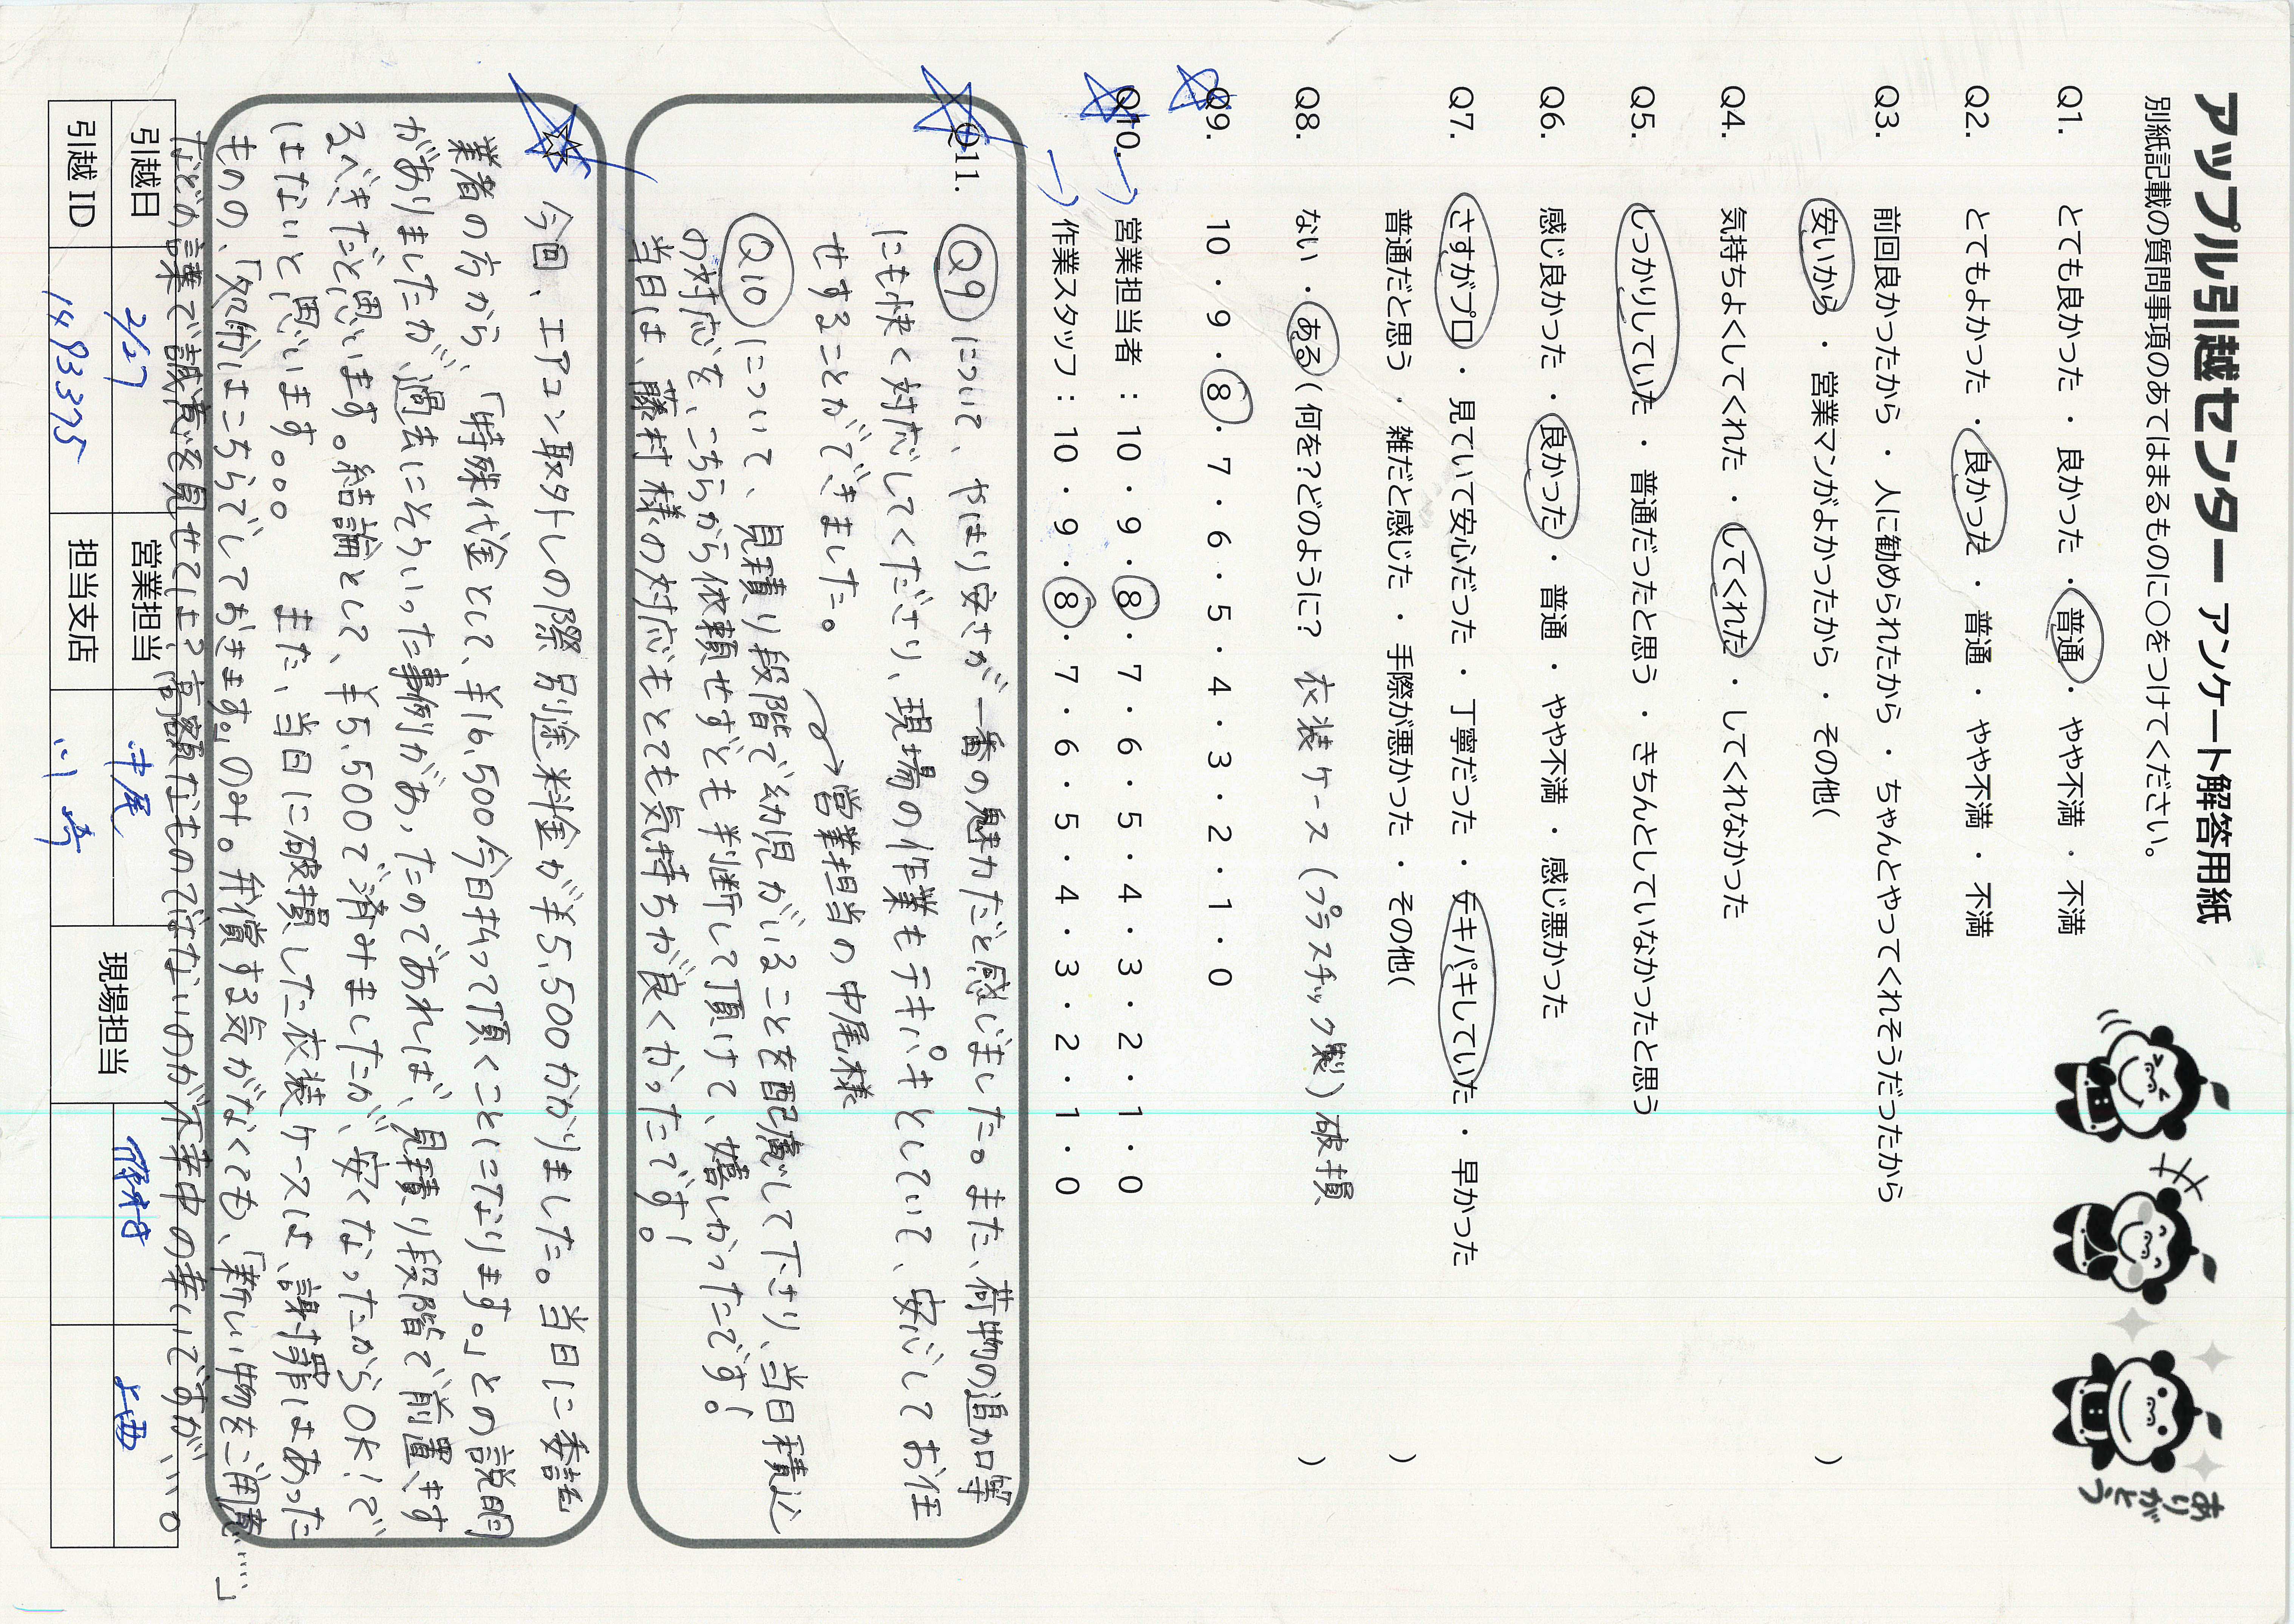 アップル引越センター アンケート解答用紙
別紙記載の質問事項のあてはまるものに○をつけてください。
Q1. とても良かった ・ 良かった ・ 普通 ・ やや不満 ・ 不満
Q2. とてもよかった ・ 良かった ・ 普通 ・ やや不満 ・ 不満
Q3. 前回良かったから ・ 人に勧められたから ・ ちゃんとやってくれそうだったから
安いから ・ 営業マンがよかったから ・ その他( )
Q4. 気持ちよくしてくれた ・ してくれた ・ してくれなかった
Q5. しっかりしていた ・ 普通だったと思う ・ きちんとしていなかったと思う
Q6. 感じ良かった ・ 良かった ・ 普通 ・ やや不満 ・ 感じ悪かった
Q7. さすがプロ ・ 見ていて安心だった ・ 丁寧だった ・ テキパキしていた ・ 早かった
普通だと思う ・ 雑だと感じた ・ 手際が悪かった ・ その他( )
Q8. ない ・ ある ( 何を?どのように? 衣装ケース (プラスチック製) 破損 )
Q9. 10 ・ 9 ・ 8 ・ 7 ・ 6 ・ 5 ・ 4 ・ 3 ・ 2 ・ 1 ・ 0
Q10. → 営業担当者 : 10 ・ 9 ・ 8 ・ 7 ・ 6 ・ 5 ・ 4 ・ 3 ・ 2 ・ 1 ・ 0
→ 作業スタッフ : 10 ・ 9 ・ 8 ・ 7 ・ 6 ・ 5 ・ 4 ・ 3 ・ 2 ・ 1 ・ 0
Q11. Q9 について、やはり安さが一番の魅力だと感じました。また、荷物の追加等
にも快く対応してくださり、現場の作業もテキパキとしていて、安心してお任
せすることができました。 → 営業担当の中尾様
Q10 について、見積り段階で幼児がいることを配慮して下さり、当日積込
の対応を、こちらから依頼せずとも判断して頂けて、嬉しかったです!
当日は、藤村様の対応もとても気持ちが良くかったです!
☆ 今回、エアコン取外しの際 別途料金が¥5,500かかりました。当日に委託
業者の方から、「特殊代金として、¥16,500今日払って頂くことになります。」との説明
がありましたが、過去にそういった事例があったのであれば、見積り段階で前置きす
るべきだと思います。結論として、¥5,500で済みましたが、安くなったからOK!で
はないと思います。。。 また、当日に破損した衣装ケースは、謝罪はあった
ものの、「処分はこちらでしておきます。」のみ。弁償する気がなくても、「新しい物をご用意……」
などの議で誠意を見せては?高額なものではないのが不幸中の幸いですが、、、。
引越日 2/27 営業担当 中尾 現場担当 藤村 上西
引越 ID 1493375 担当支店 川崎
ありがとう